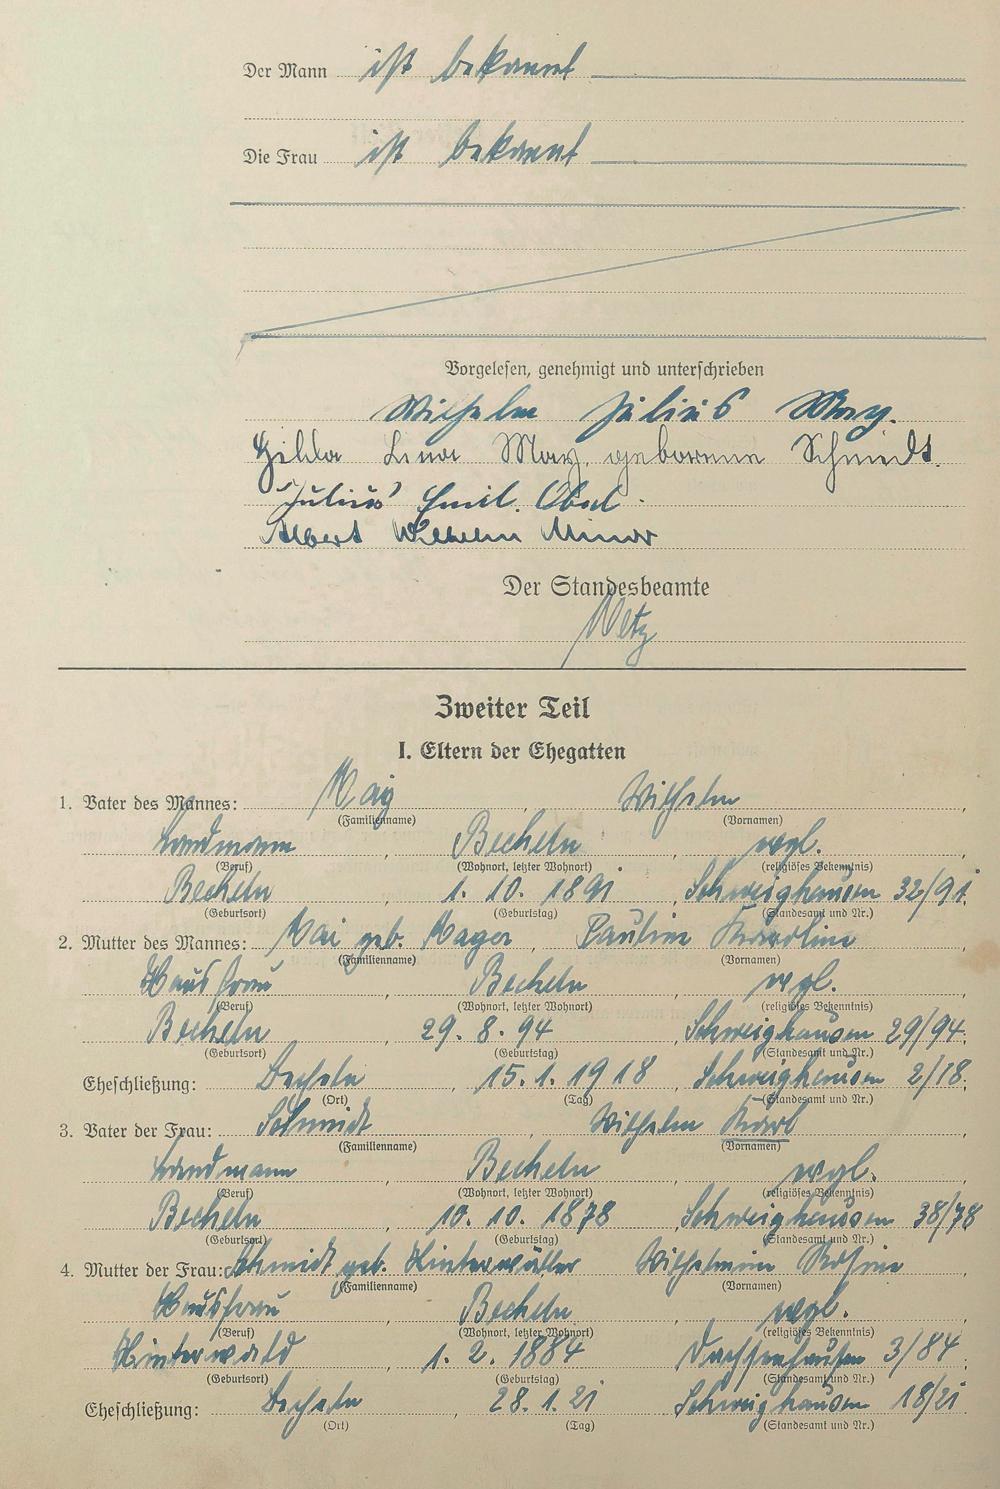 Der Mann ist bekannt
Die Frau ist bekannt
Vorgelesen, genehmigt und unterschrieben
Wilhelm Julius May.
Hilda Lina May, geborene Schmidt.
Julius Emil Obel.
Albert Wilhelm Minor
Der Standesbeamte
Metz
Zweiter Teil
I. Eltern der Ehegatten
1. Vater des Mannes: May, Wilhelm,
(Familienname) (Vornamen)
Landmann, Becheln, evgl.,
(Beruf) (Wohnort, letzter Wohnort) (religiöses Bekenntnis)
Becheln, 1. 10. 1891, Schweighausen 32/91.
(Geburtsort) (Geburtstag) (Standesamt und Nr.)
2. Mutter des Mannes: Mai geb. Mager, Pauline Karoline,
(Familienname) (Vornamen)
Hausfrau, Becheln, evgl.,
(Beruf) (Wohnort, letzter Wohnort) (religiöses Bekenntnis)
Becheln, 29. 8. 94, Schweighausen 29/94.
(Geburtsort) (Geburtstag) (Standesamt und Nr.)
Eheschließung: Becheln, 15. 1. 1918, Schweighausen 2/18.
(Ort) (Tag) (Standesamt und Nr.)
3. Vater der Frau: Schmidt, Wilhelm Karl,
(Familienname) (Vornamen)
Landmann, Becheln, evgl.,
(Beruf) (Wohnort, letzter Wohnort) (religiöses Bekenntnis)
Becheln, 10. 10. 1878, Schweighausen 38/78
(Geburtsort) (Geburtstag) (Standesamt und Nr.)
4. Mutter der Frau: Schmidt geb. Hinterwäller Wilhelmine Rosine,
(Familienname) (Vornamen)
Hausfrau, Becheln, evgl.,
(Beruf) (Wohnort, letzter Wohnort) (religiöses Bekenntnis)
Hinterwald, 1. 2. 1884, Dachsenhausen 3/84.
(Geburtsort) (Geburtstag) (Standesamt und Nr.)
Eheschließung: Becheln, 28. 1. 21, Schweighausen 18/21.
(Ort) (Tag) (Standesamt und Nr.)